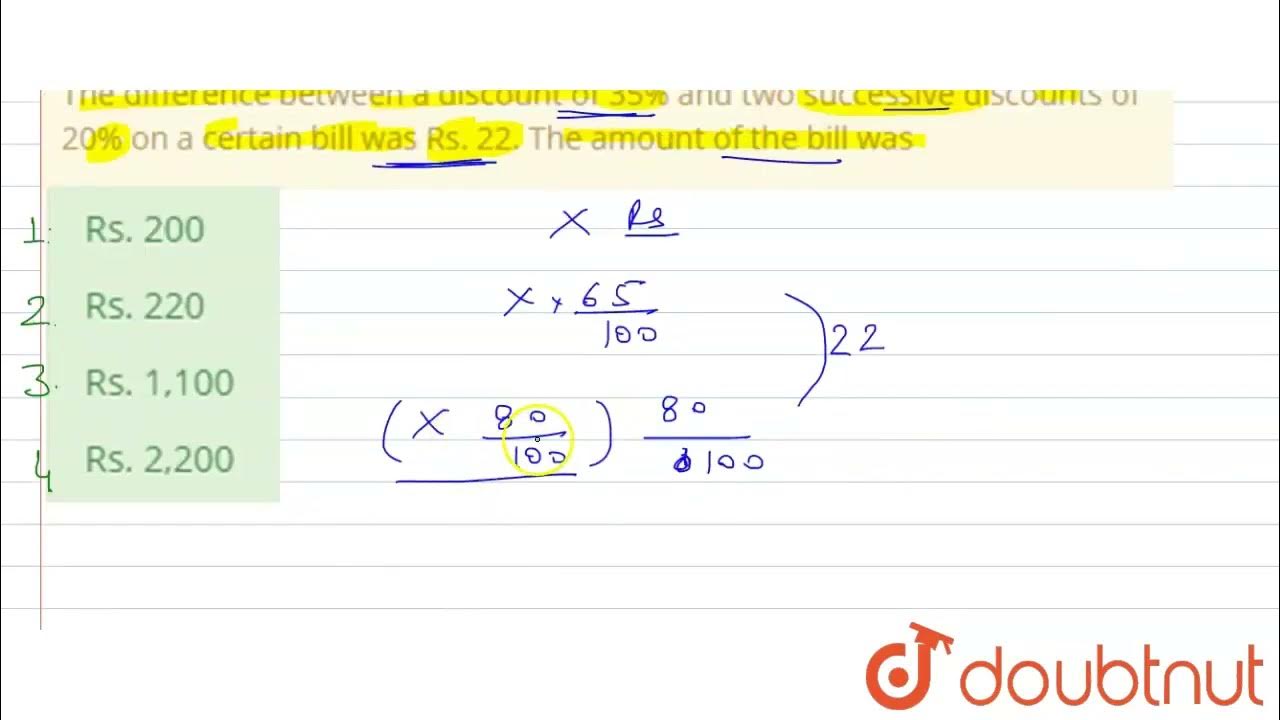 The difference between a discount of 35% and two successive discounts of
20% on a certain bill was Rs. 22. The amount of the bill was
1. Rs. 200
2. Rs. 220
3. Rs. 1,100
4 Rs. 2,200
X Rs
X × 65
100
22
( X 80 ) 80
100 100
doubtnut